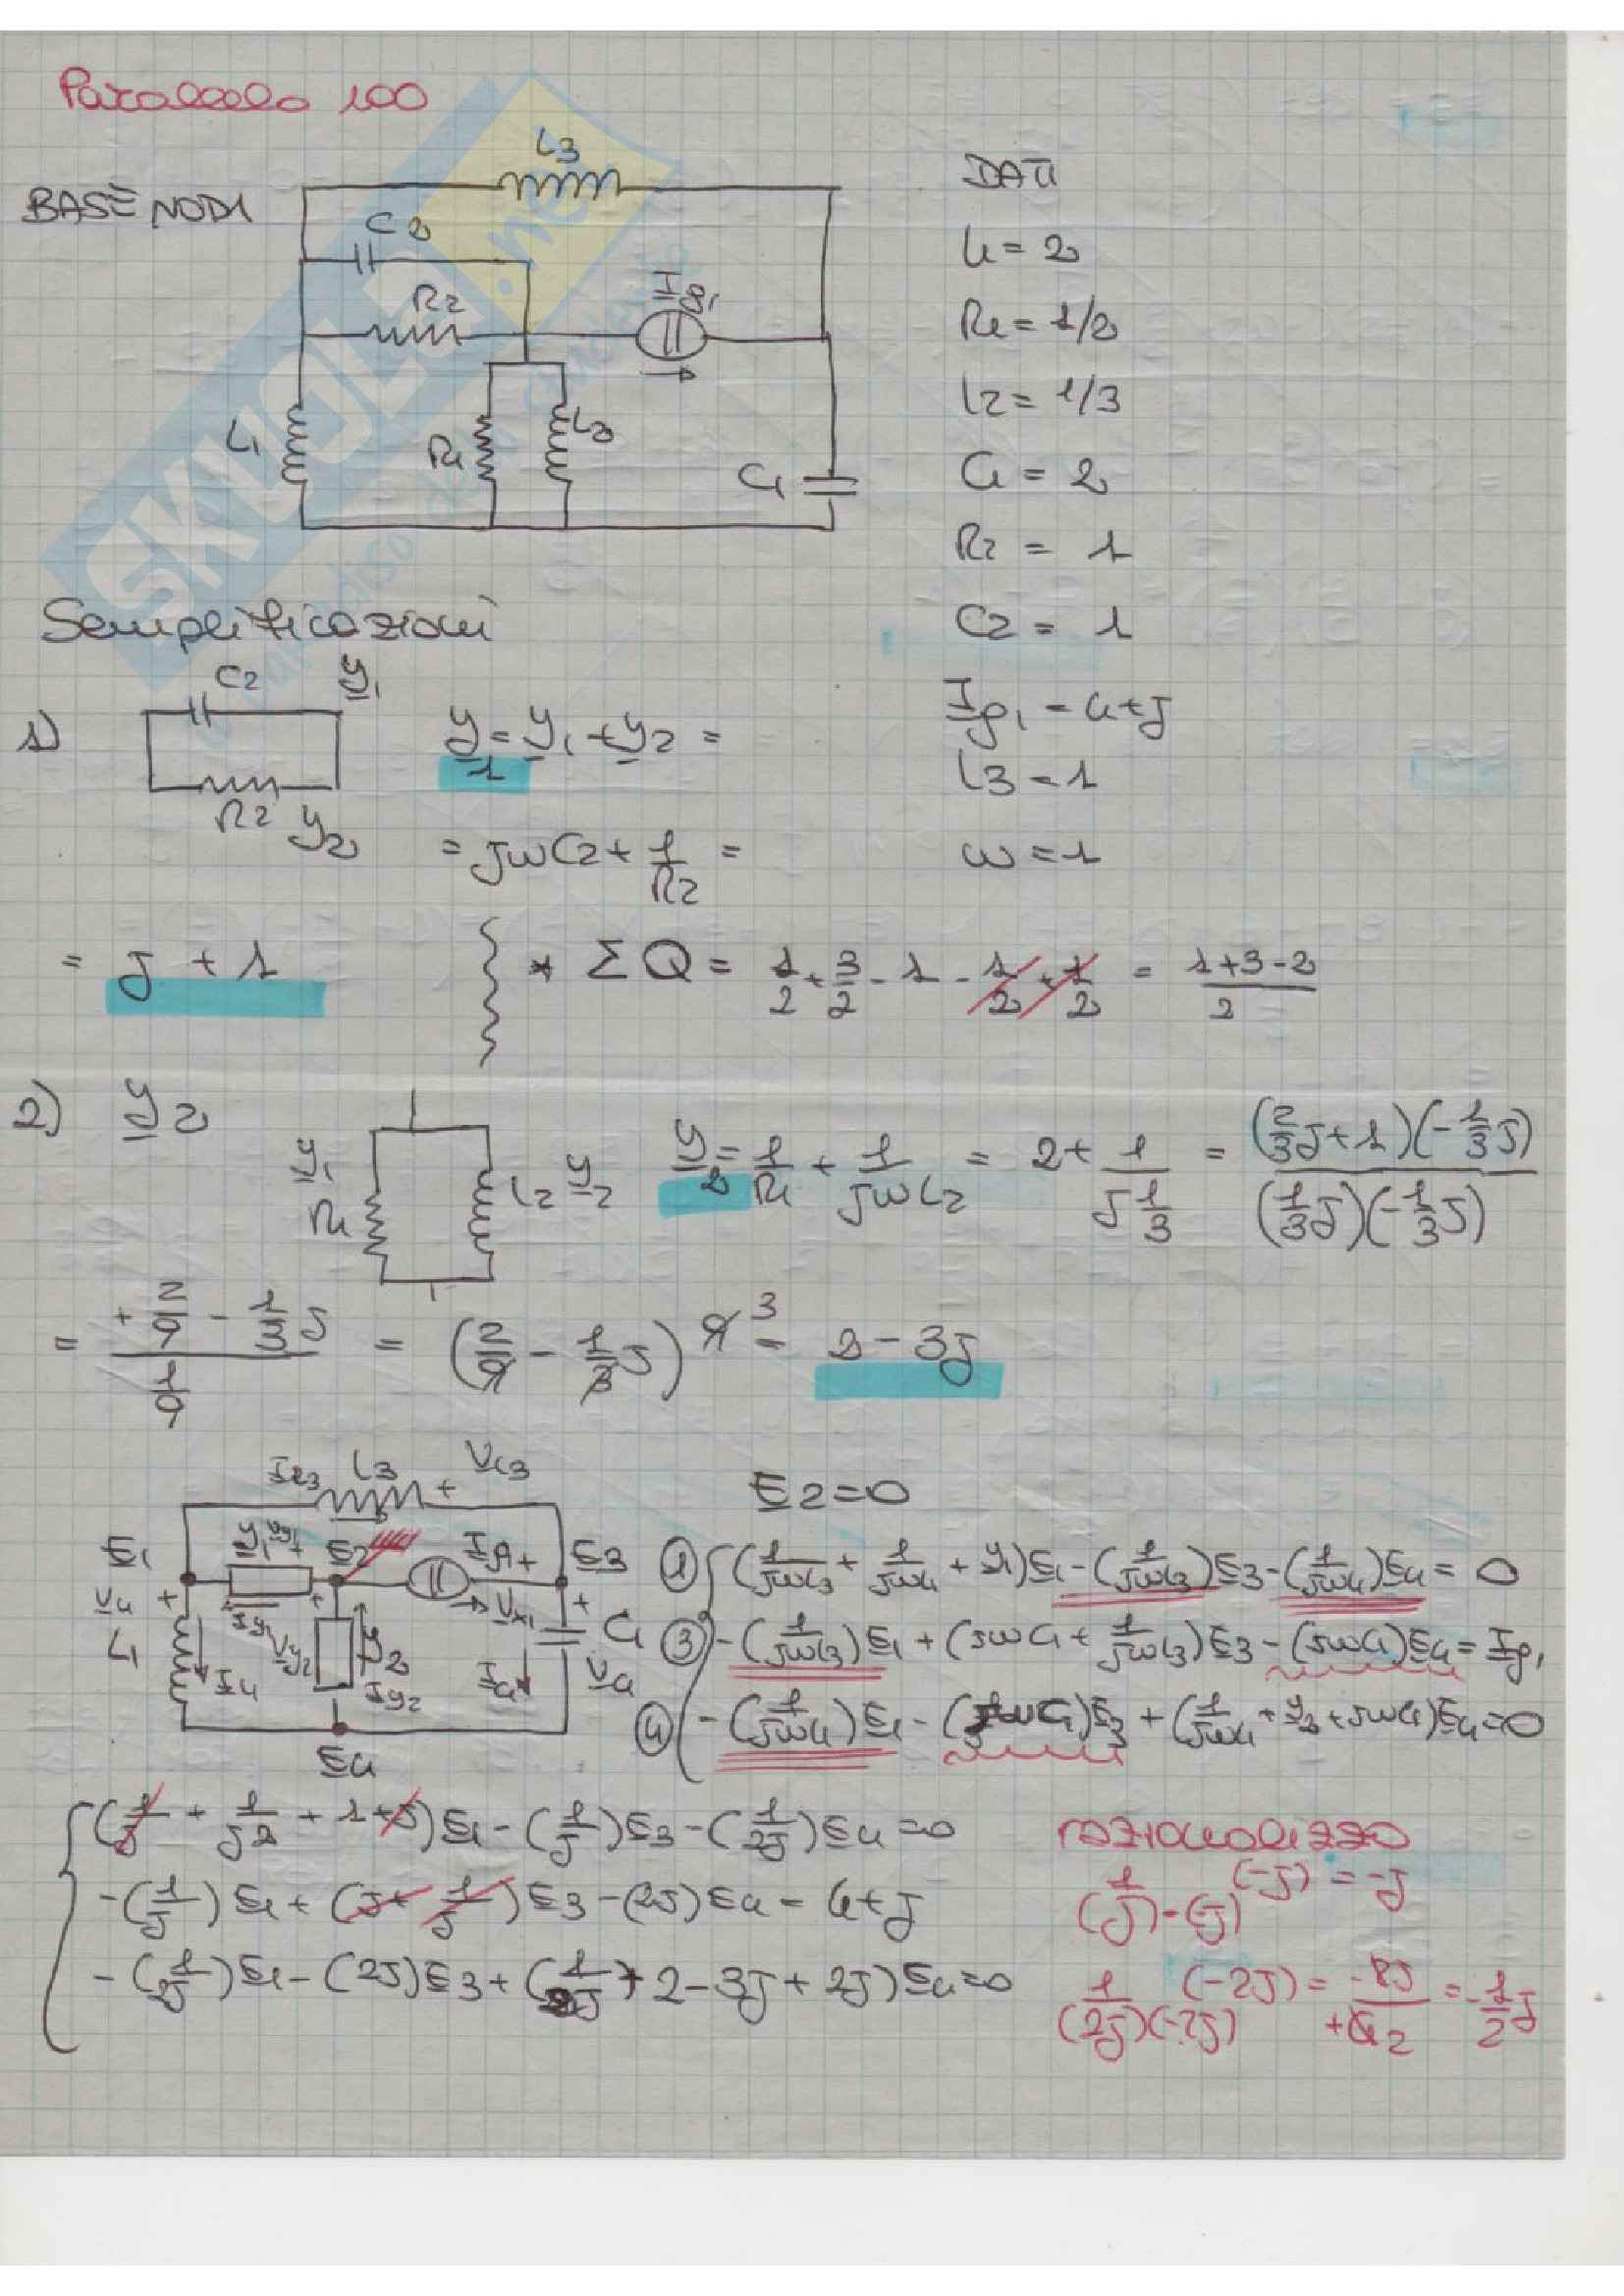 Parallelo 100
BASE NODI
L3
C2
R2
Ig1
L1
R1
L2
C1
DATI
L1 = 2
R1 = 1/2
L2 = 1/3
C1 = 2
R2 = 1
C2 = 1
Ig1 = 4+J
L3 = 1
ω = 1
Semplificazioni
1)
C2 y1
R2 y2
y1 = y1 + y2 =
= Jωc2 + 1/R2 =
= J + 1
* ΣQ = 1/2 + 3/2 - 1 - 1/2 + 1/2 = (1+3-2)/2
2) y2
y1 R1 L2 y2
y2 = 1/R1 + 1/JωL2 = 2 + 1/(J 1/3) = (2/3 J + 1)(-1/3 J) / (1/3 J)(-1/3 J)
= (+2/9 - 1/3 J) / (1/9) = (2/9 - 1/3 J) 9 3 = 2 - 3J
IL3 L3 + VL3
E1 y1 Vy1 + E2 Ig1 + E3
VL1 + L1 IL1 Iy1 Vy2 + y2 Iy2 Vg1 IC1 + C1 VC1
E4
E2 = 0
① (1/JωL3 + 1/JωL1 + y1)E1 - (1/JωL3)E3 - (1/JωL1)E4 = 0
③ -(1/JωL3)E1 + (JωC1 + 1/JωL3)E3 - (JωC1)E4 = Ig1
④ -(1/JωL1)E1 - (JωC1)E3 + (1/JωL1 + y2 + JωC1)E4 = 0
(1/J + 1/J2 + 1 + J)E1 - (1/J)E3 - (1/2J)E4 = 0
-(1/J)E1 + (J + 1/J)E3 - (2J)E4 = 4+J
-(1/2J)E1 - (2J)E3 + (1/2J + 2 - 3J + 2J)E4 = 0
razionalizzo
1/(J)-(J) (-J) = -J
1/(2J)(-2J) (-2J) = -2J/+4 2 = -1/2 J
SKUOLA.net